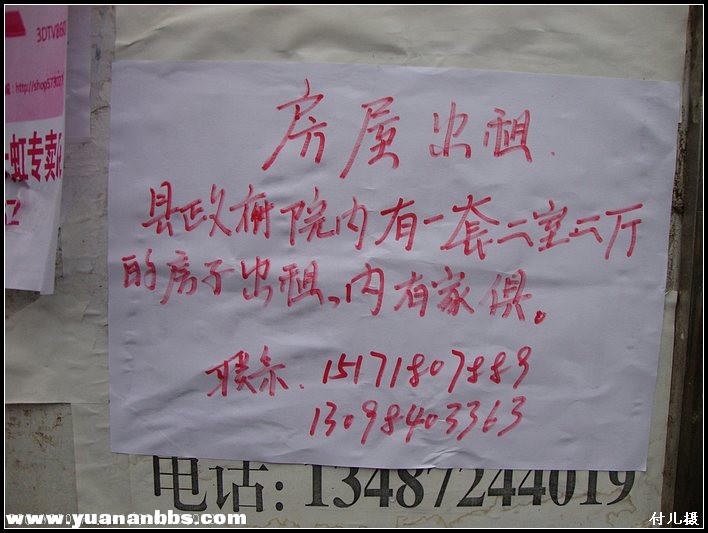 3DTV860
http://shop579027
虹专卖
房屋出租.
县政府院内有一套二室二厅
的房子出租、内有家俱。
联系. 15171807889
13098403363
电话: 13487244019
www.yuananbbs.com
付儿摄